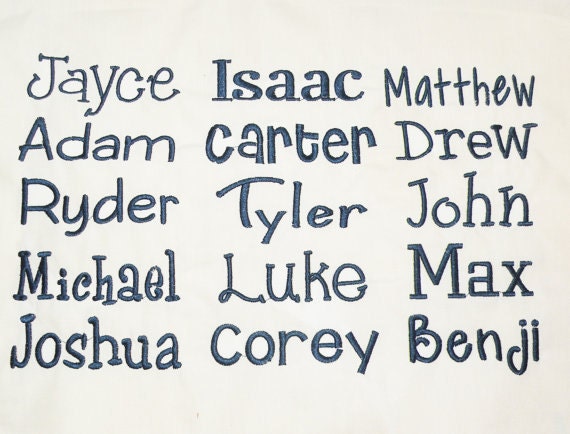 Jayce Isaac Matthew
Adam Carter Drew
Ryder Tyler John
Michael Luke Max
Joshua Corey Benji